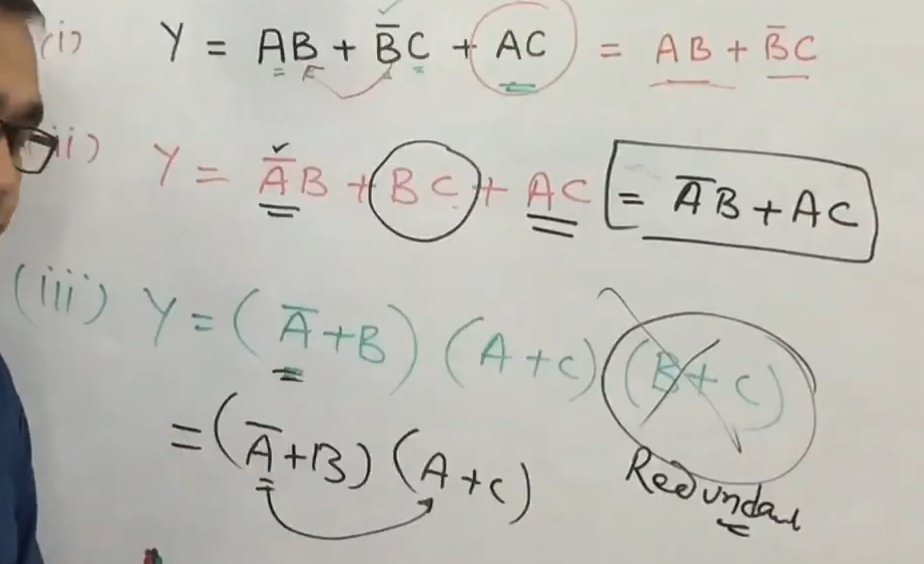 (i) Y = AB + B̅C + AC = AB + B̅C
(ii) Y = A̅B + BC + AC = A̅B + AC
(iii) Y = (A̅+B) (A+C) (B+C)
= (A̅+B) (A+C)
Redundant